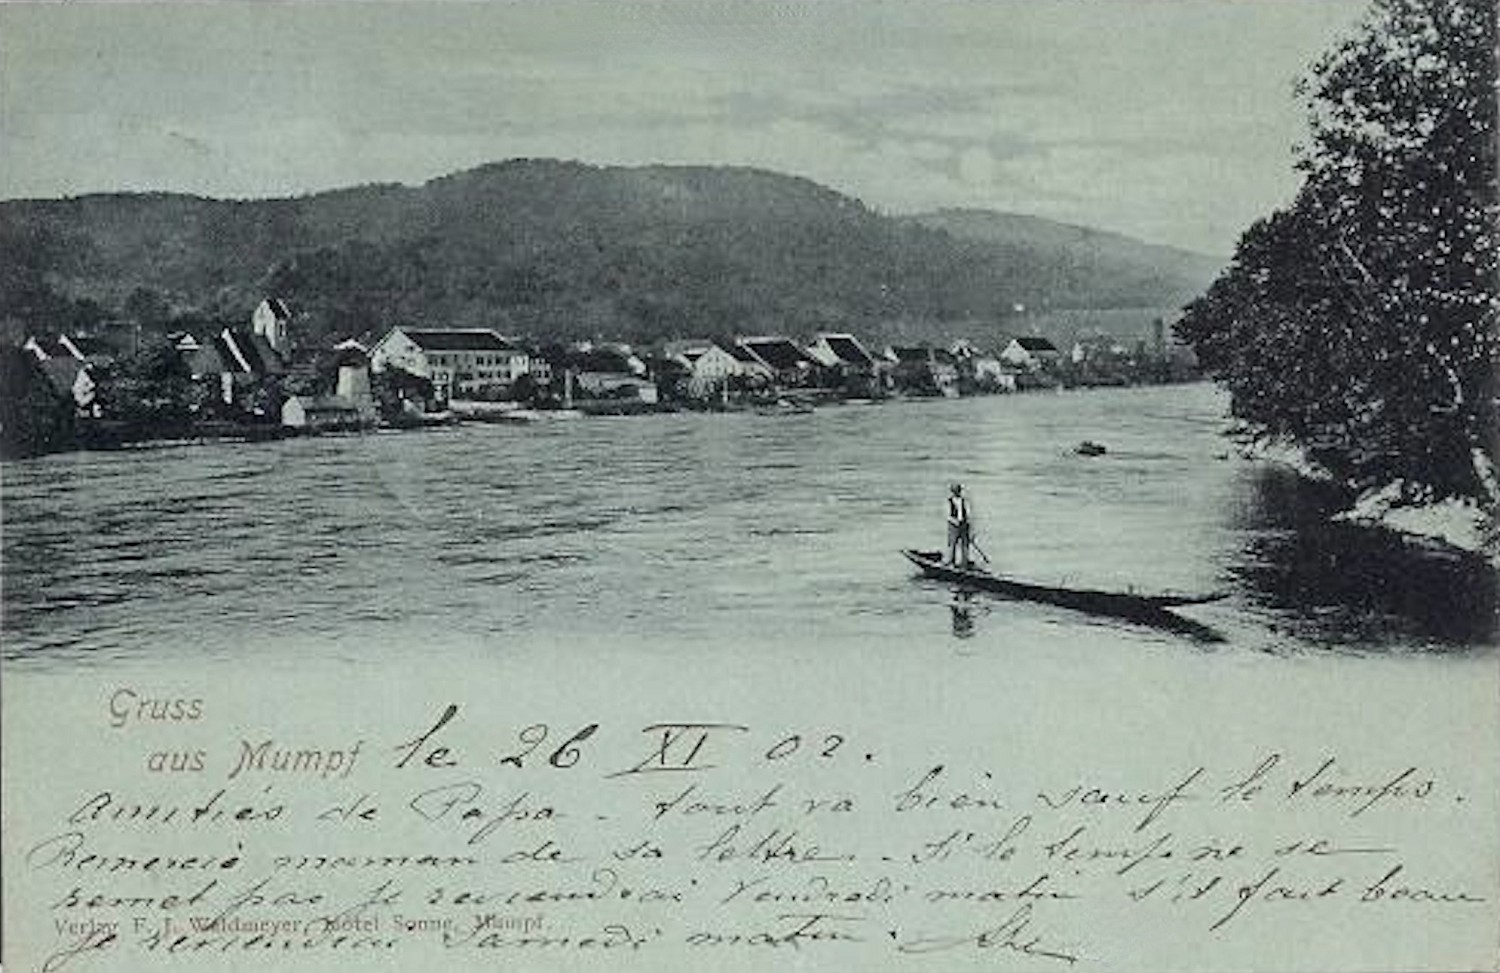 Gruss
aus Mumpf
le 26 XI 02.
Amitiés de Papa - tout va bien sauf le temps.
Remercie maman de sa lettre. - Si le temps ne se
remet pas je reviendrai Vendredi matin s'il fait beau
Verlag F. J. Waldmeyer, Hôtel Sonne, Mumpf.
je reviendrai Samedi matin.